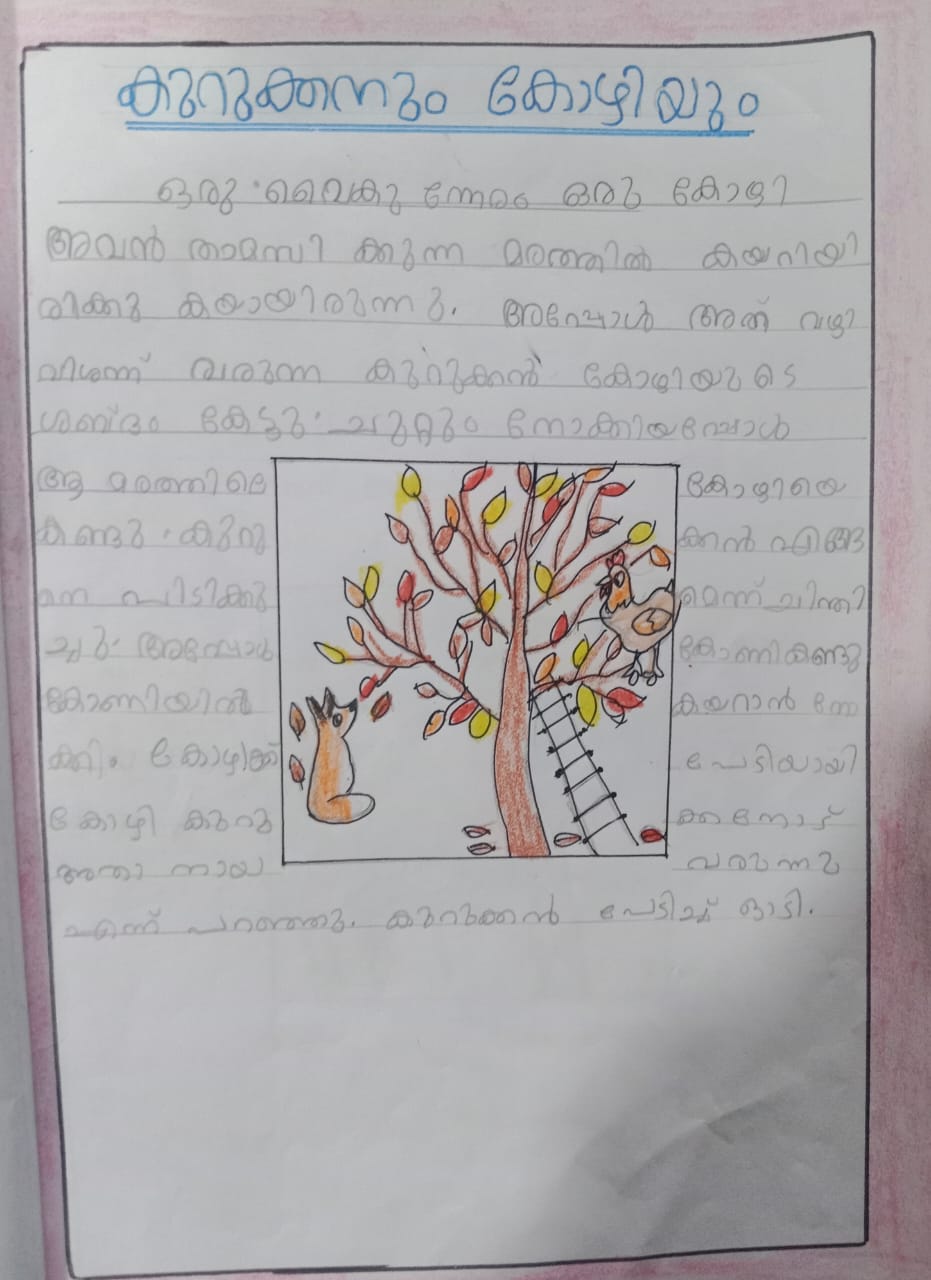 കുറുക്കനും കോഴിയും
ഒരു വൈകുന്നേരം ഒരു കോഴി
അവൻ താമസിക്കുന്ന മരത്തിൽ കയറിയി
രിക്കുകയായിരുന്നു. അപ്പോൾ അത് വഴി
വിശന്ന് വരുന്ന കുറുക്കൻ കോഴിയുടെ
ശബ്ദം കേട്ടു. ചുറ്റും നോക്കിയപ്പോൾ
ആ മരത്തിലെ കോഴിയെ
കണ്ടു. കുറു ക്കൻ എങ്ങ
നെ പിടിക്കു മെന്ന് ചിന്തി
ച്ചു. അപ്പോൾ കോണികണ്ടു
കോണിയിൽ കയറാൻ നോ
ക്കി. കോഴിക്ക് പേടിയായി
കോഴി കുറു ക്കനോട്
അതാ നായ വരുന്നു
എന്ന് പറഞ്ഞു. കുറുക്കൻ പേടിച്ച് ഓടി.